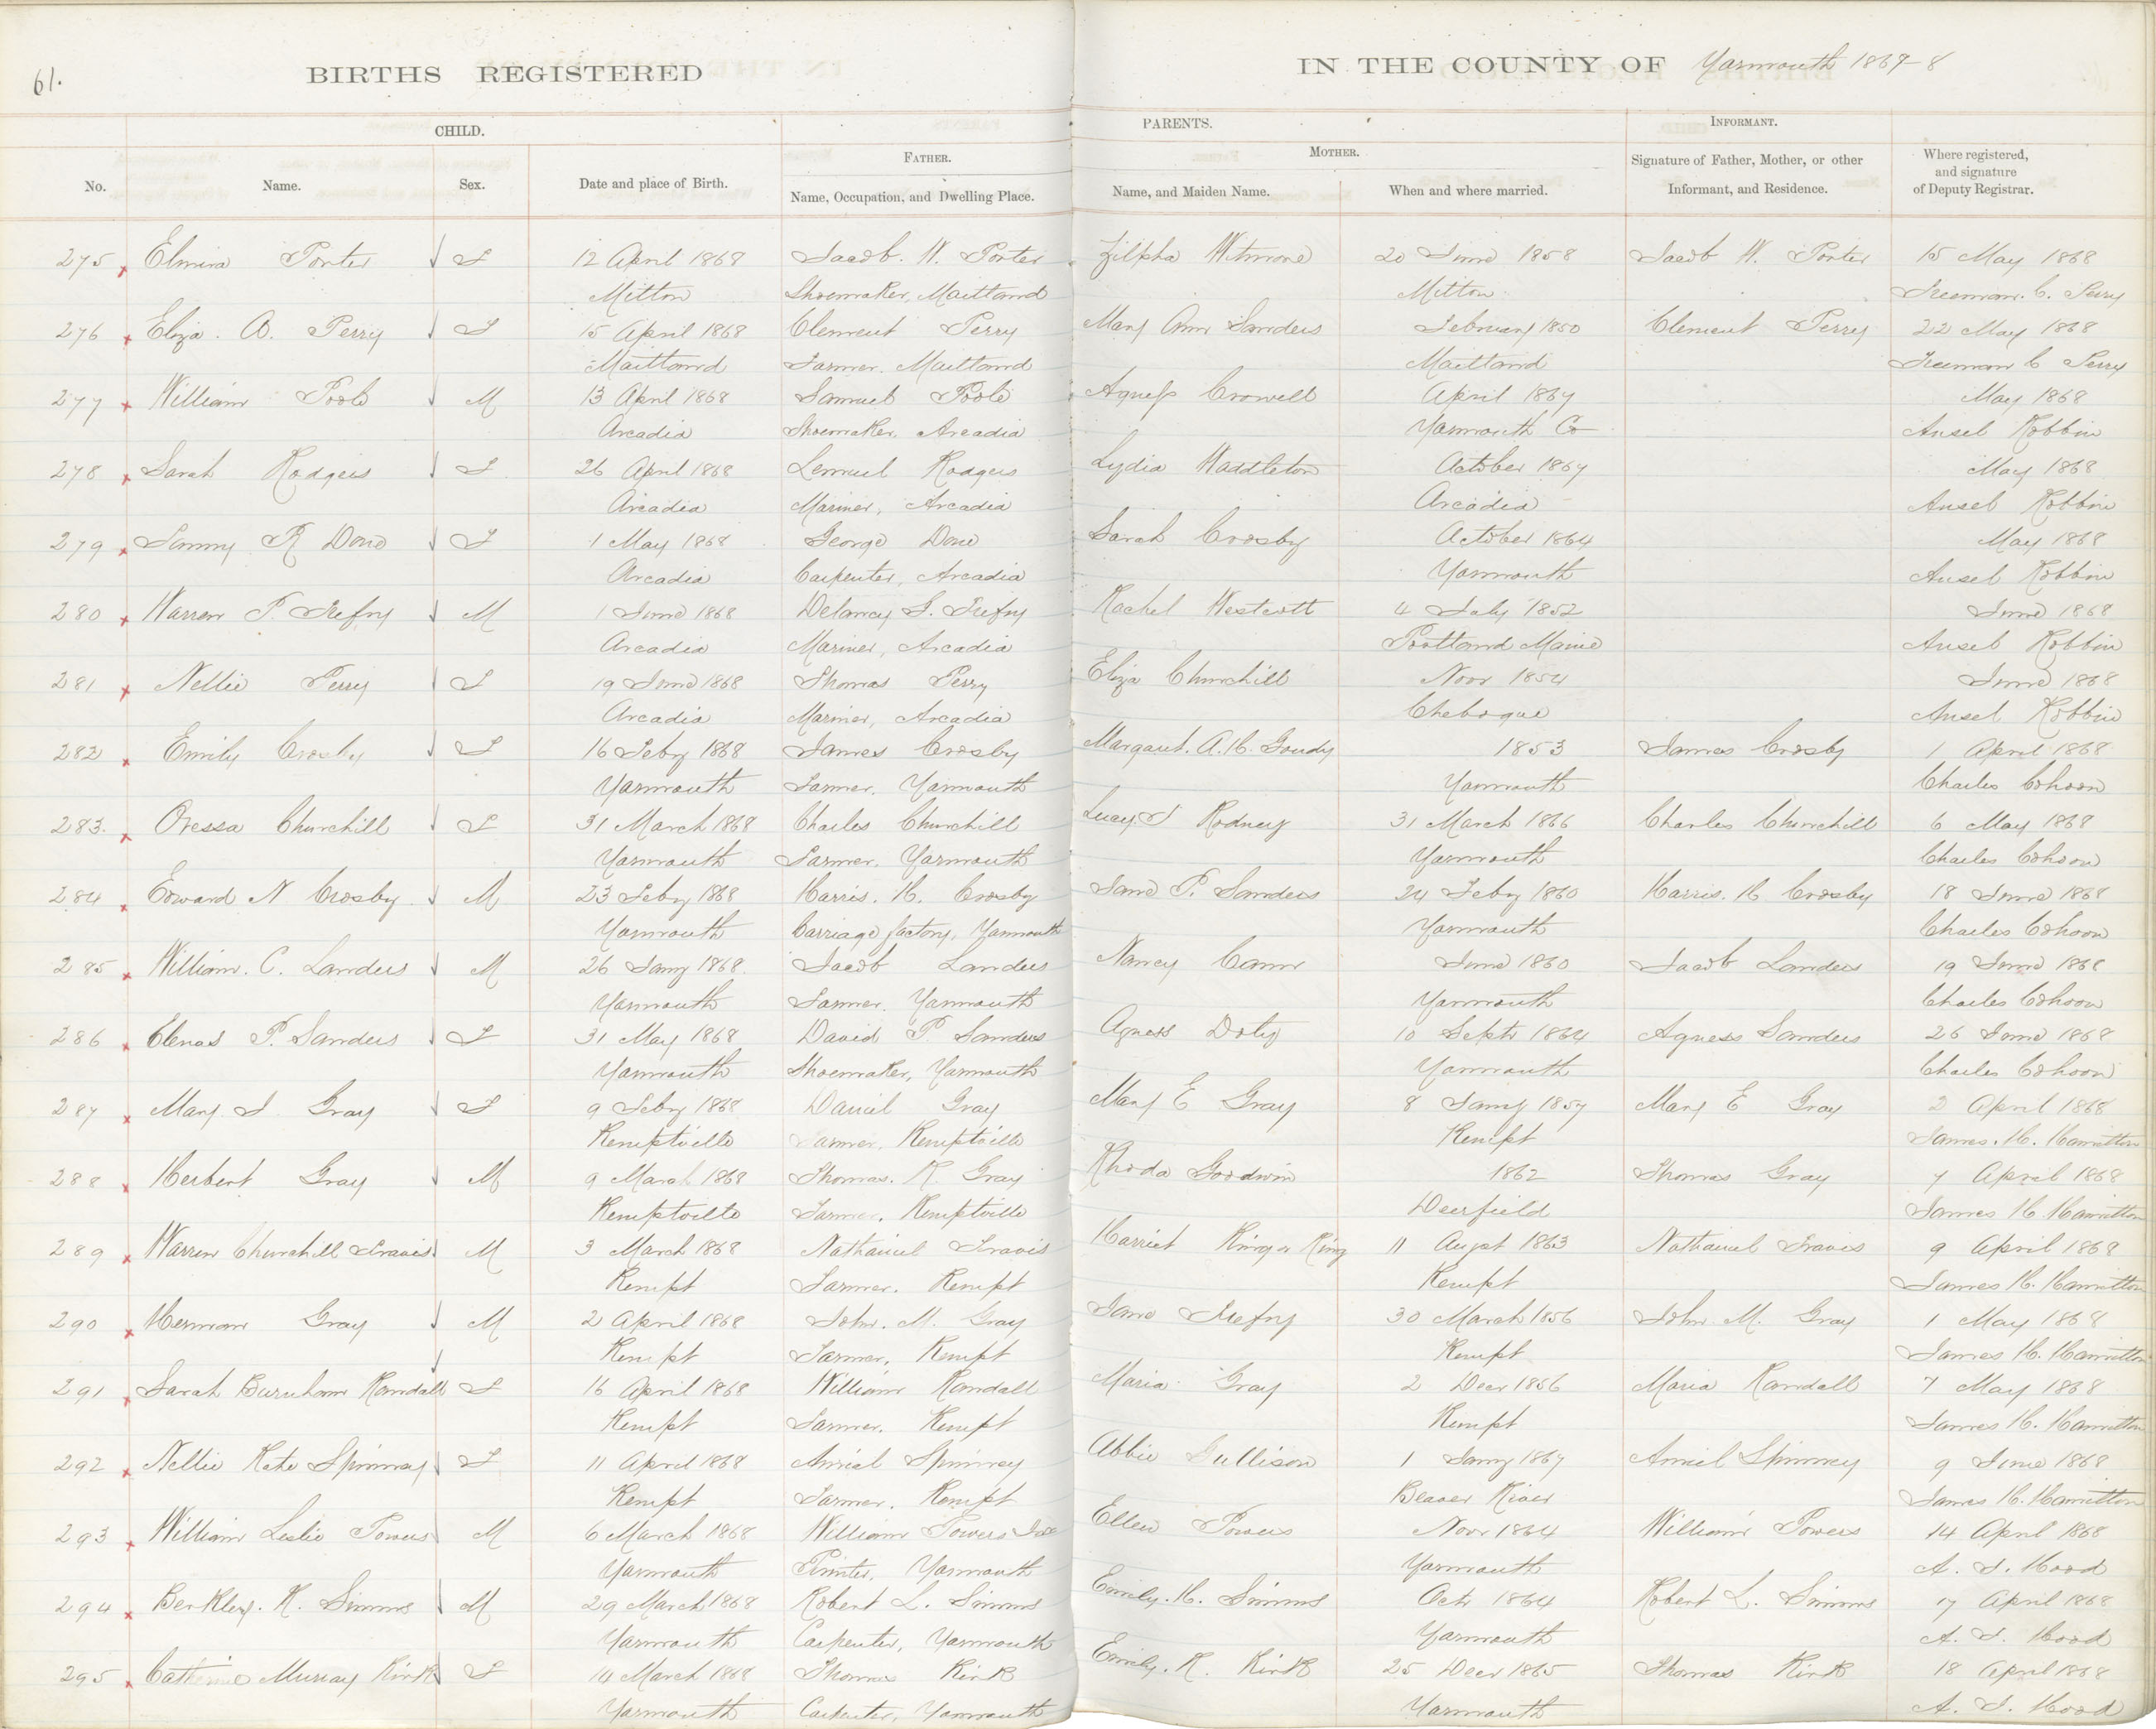 61.
BIRTHS REGISTERED
IN THE COUNTY OF Yarmouth 1867-8
CHILD.
PARENTS.
INFORMANT.
No.
Name.
Sex.
Date and place of Birth.
FATHER.
Name, Occupation, and Dwelling Place.
MOTHER.
Name, and Maiden Name.
When and where married.
Signature of Father, Mother, or other
Informant, and Residence.
Where registered,
and signature
of Deputy Registrar.
275 Elmira Porter F 12 April 1868 Jacob. W. Porter Zilpha Witmore 20 June 1858 Jacob W. Porter 15 May 1868
Milton Shoemaker, Maitland Milton Freeman. C. Perry
276 Eliza. A. Perry F 15 April 1868 Clement Perry Mary Ann Sanders February 1850 Clement Perry 22 May 1868
Maitland Farmer. Maitland Maitland Freeman C Perry
277 William Poole M 13 April 1868 Samuel Poole Agness Crowell April 1867 May 1868
Arcadia Shoemaker. Arcadia Yarmouth Co Ansel Robbin
278 Sarah Rodgers F 26 April 1868 Lemuel Rodgers Lydia Waddleton October 1867 May 1868
Arcadia Mariner, Arcadia Arcadia Ansel Robbin
279 Fanny R Dowe F 1 May 1868 George Dow Sarah Crosby October 1864 May 1868
Arcadia Carpenter, Arcadia Yarmouth Ansel Robbin
280 Warren T. Trefry M 1 June 1868 Delancy S. Trefry Rachel Westcott 4 July 1852 June 1868
Arcadia Mariner, Arcadia Portland Maine Ansel Robbin
281 Nellie Perry F 19 June 1868 Thomas Perry Eliza Churchill Novr 1854 June 1868
Arcadia Mariner, Arcadia Chebogue Ansel Robbin
282 Emily Crosby F 16 Feby 1868 James Crosby Margaret. A. H. Goudy 1853 James Crosby 1 April 1868
Yarmouth Farmer. Yarmouth Yarmouth Charles Cohoon
283. Oressa Churchill F 31 March 1868 Charles Churchill Lucy. J Rodney 31 March 1866 Charles Churchill 6 May 1868
Yarmouth Farmer. Yarmouth Yarmouth Charles Cohoon
284 Edward N Crosby. M 23 Feby 1868 Harris. H. Crosby Jane P. Sanders 24 Feby 1860 Harris. H Crosby 18 June 1868
Yarmouth Carriage factory, Yarmouth Yarmouth Charles Cohoon
285 William. C. Landers M 26 Jany 1868. Jacob Landers Nancy Cann June 1860 Jacob Landers 19 June 1868
Yarmouth Farmer. Yarmouth Yarmouth Charles Cohoon
286 P. Sanders F 31 May 1868 David P. Sanders Agness Doty 10 Septr 1864 Agness Sanders 26 June 1868
Yarmouth Shoemaker, Yarmouth Yarmouth Charles Cohoon
287 Mary. J. Gray F 9 Feby 1868 Daniel Gray Mary E Gray 8 Jany 1857 Mary E Gray 2 April 1868
Kemptville Farmer. Kemptville Kempt James. H. Hamilton
288 Herbert Gray M 9 March 1868 Thomas. R. Gray Rhoda Goodwin 1862 Thomas Gray 7 April 1868
Kemptville Farmer. Kemptville Deerfield James H. Hamilton
289 Warren Churchill Travis M 3 March 1868 Nathaniel Travis Harriet King or Ring 11 Augst 1863 Nathaniel Travis 9 April 1868
Kempt Farmer. Kempt Kempt James H. Hamilton
290 Herman Gray M 2 April 1868 John. M. Gray Jane Trefry 30 March 1856 John M. Gray 1 May 1868
Kempt Farmer, Kempt Kempt James H. Hamilton
291 Sarah Burnham Randall F 16 April 1868 William Randall Maria Gray 2 Decr 1856 Maria Randall 7 May 1868
Kempt Farmer. Kempt Kempt James H. Hamilton
292 Nellie Kate Spinney F 11 April 1868 Amiel Spinney Abbie Gullison 1 Jany 1867 Amiel Spinney 9 June 1868
Kempt Farmer. Kempt Beaver River James H. Hamilton
293 William Leslie Powers M 6 March 1868 William Powers Ellen Powers Novr 1864 William Powers 14 April 1868
Yarmouth Yarmouth Yarmouth A. J. Hood
294 Berkley. R. Simms M 29 March 1868 Robert L. Simms Emily. H. Simms Octr 1864 Robert L. Simms 17 April 1868
Yarmouth Carpenter, Yarmouth Yarmouth A. J. Hood
295 Catherine Murray Kirk F 14 March 1868 Thomas Kirk Emily. R. Kirk 25 Decr 1865 Thomas Kirk 18 April 1868
Yarmouth Carpenter, Yarmouth Yarmouth A. J. Hood